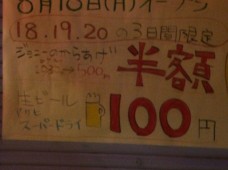 8月18日(月)オープン
18.19.20 の3日間限定
ジョニーのからあげ
500円
半額
生ビール
スーパードライ
100円